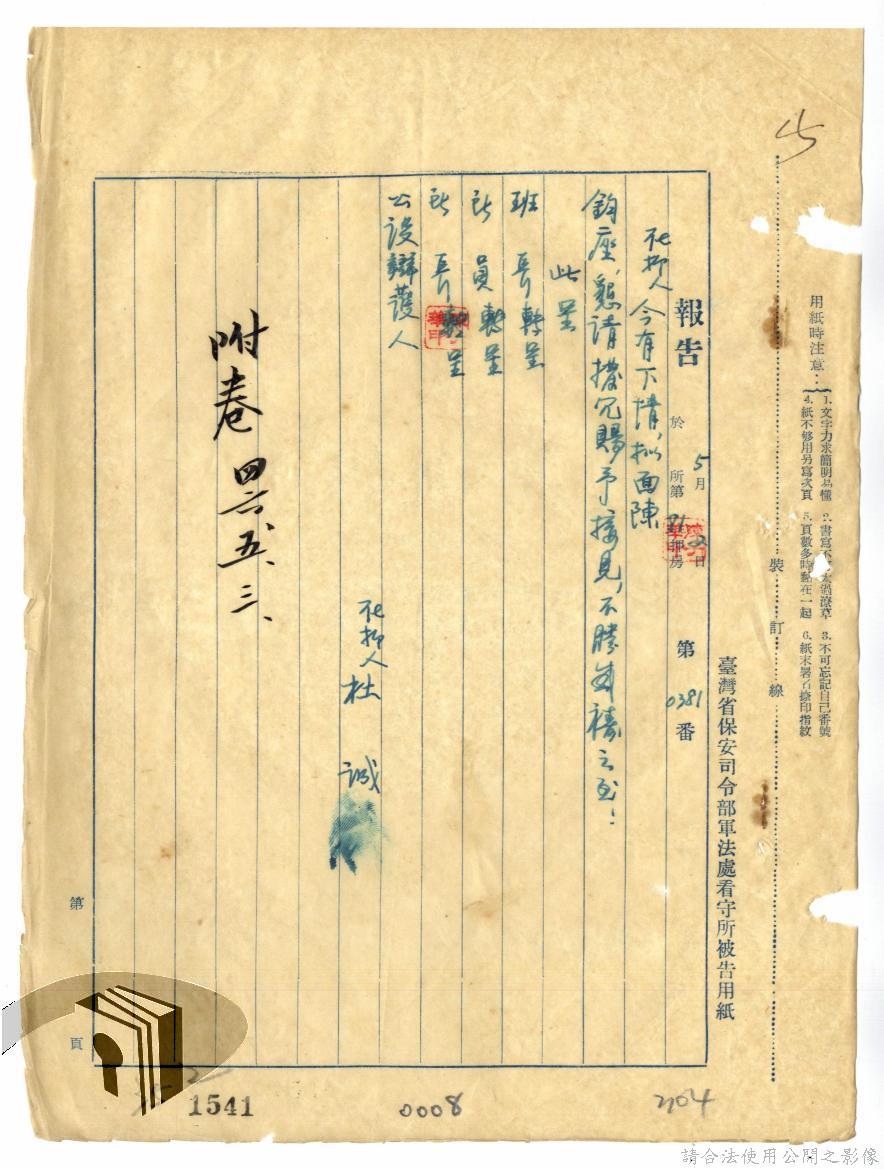 用紙時注意：
1. 文字力求簡明易懂 2. 書寫不 太過潦草 3. 不可忘記自己番號
4. 紙不够用另寫次頁 5. 頁數多時黏在一起 6. 紙末署名捺印指紋
裝 訂 線
臺灣省保安司令部軍法處看守所被告用紙
報告 於 5月2日 所第 押房 第0381番
在押人今有下情，擬面陳
鈞座，懇請撥冗賜予接見，不勝 禱之至！
此呈
班長轉呈
所員轉呈
所長轉呈
公設辯護人
在押人 杜 誠
附卷 四六、五、三、
第 頁
1541
0008
2104
請合法使用公開之影像